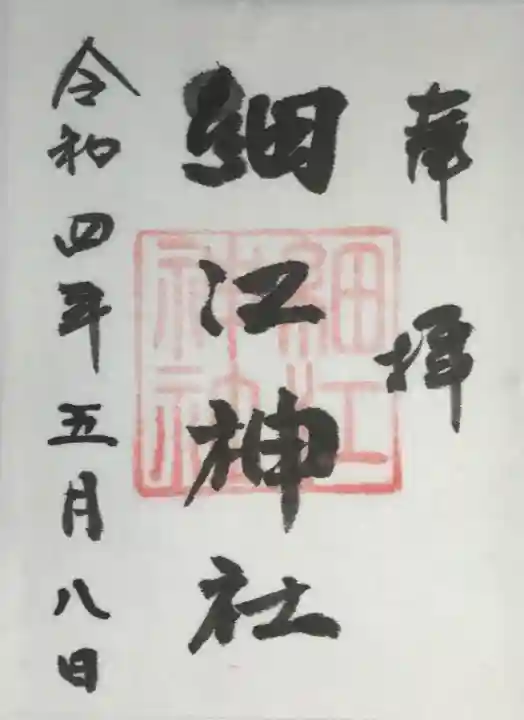 奉拝
細江神社
細江
神社
令和四年五月八日